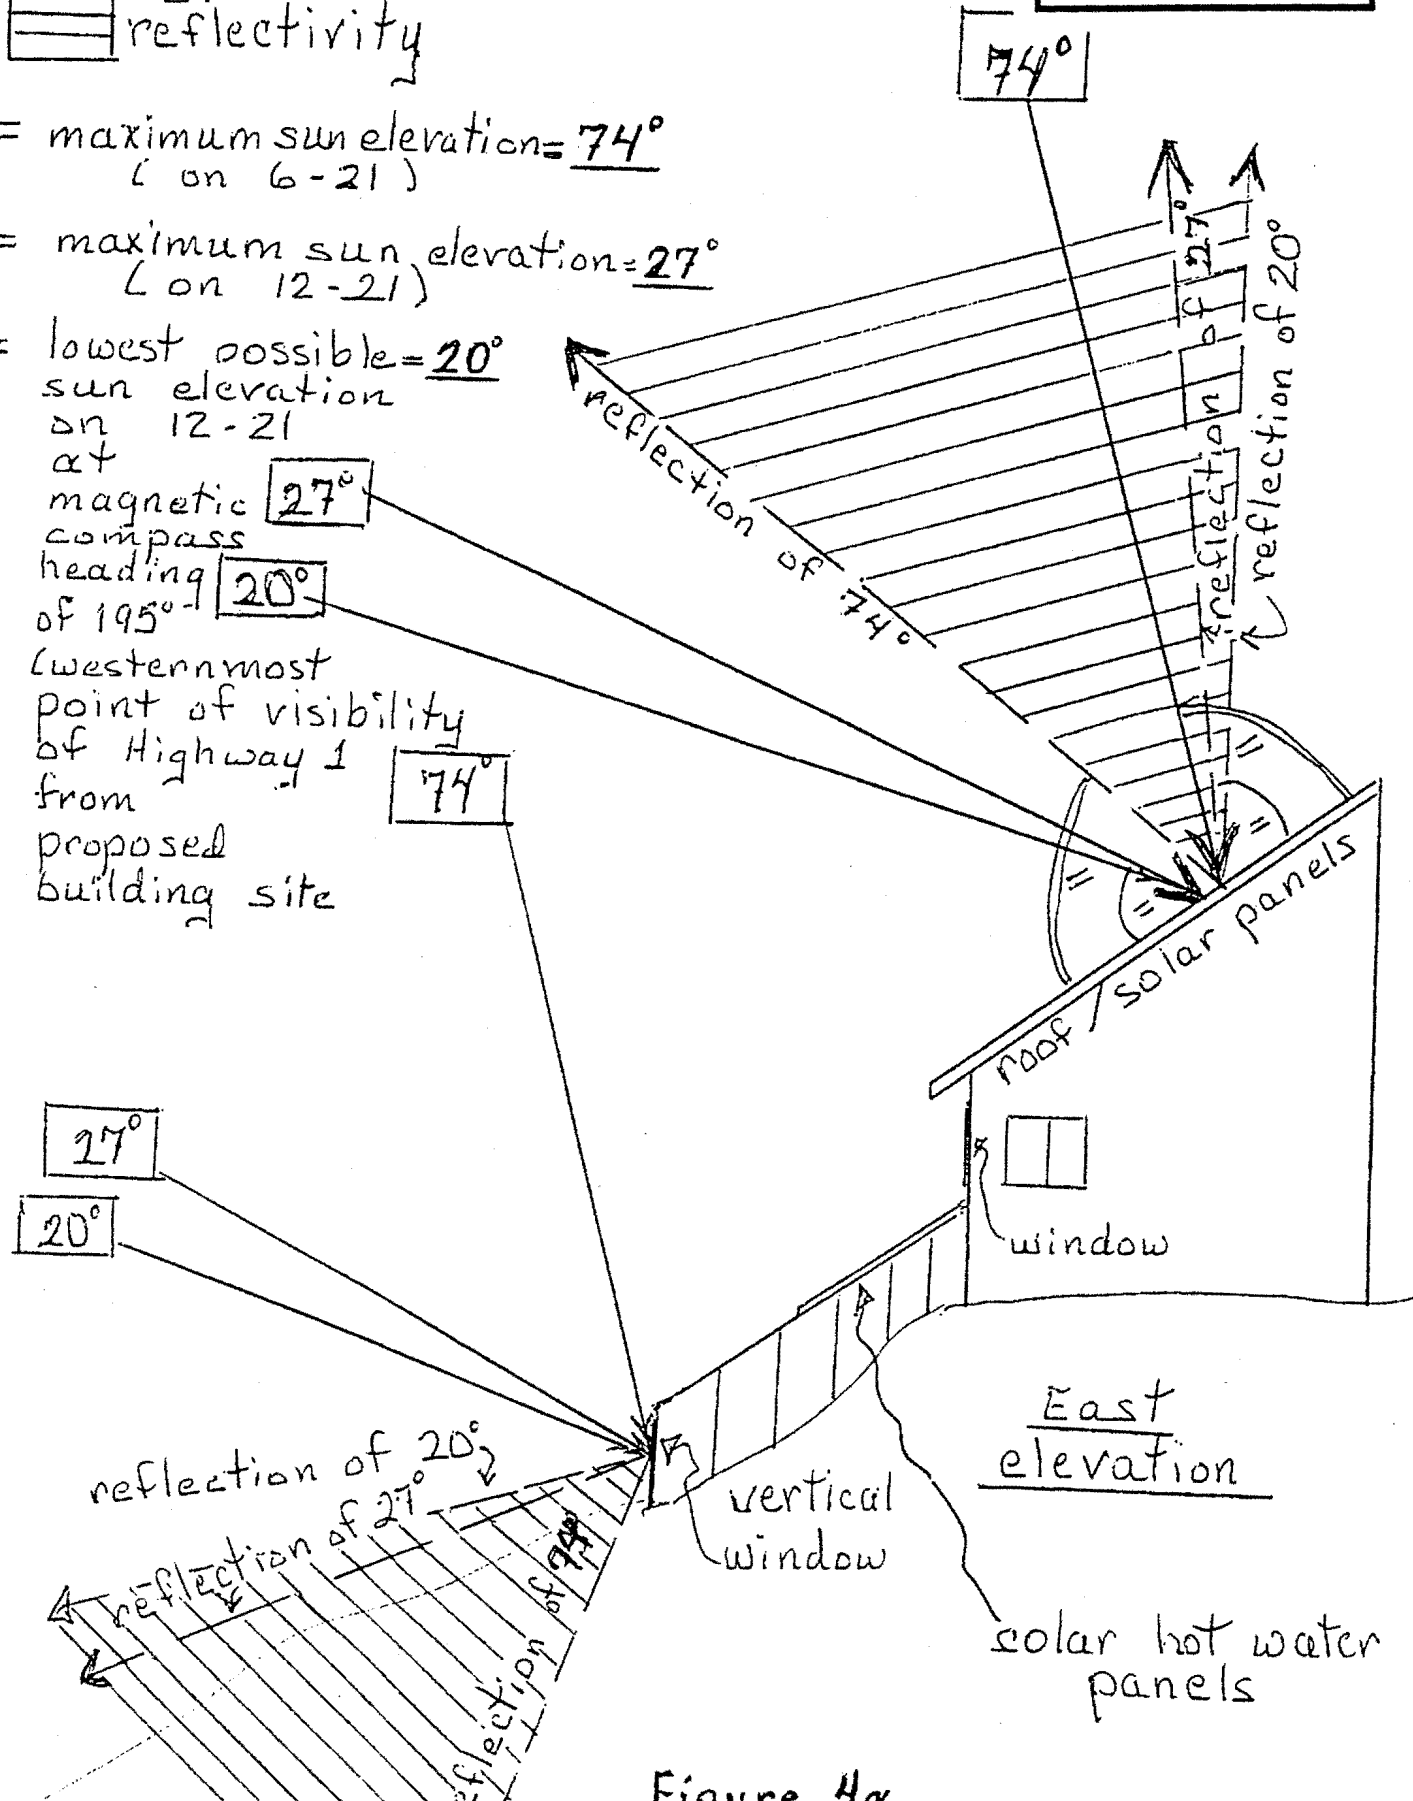 reflectivity
74°
= maximum sun elevation = 74°
( on 6-21 )
= maximum sun elevation = 27°
( on 12-21 )
= lowest possible = 20°
sun elevation
on 12-21
at
magnetic
compass
heading
of 195°
(westernmost
point of visibility
of Highway 1
from
proposed
building site
27°
20°
74°
reflection of 74°
reflection of 27°
reflection of 20°
roof / solar panels
window
27°
20°
reflection of 20°
reflection of 27°
reflection of 74°
vertical
window
East
elevation
solar hot water
panels
Figure 4a